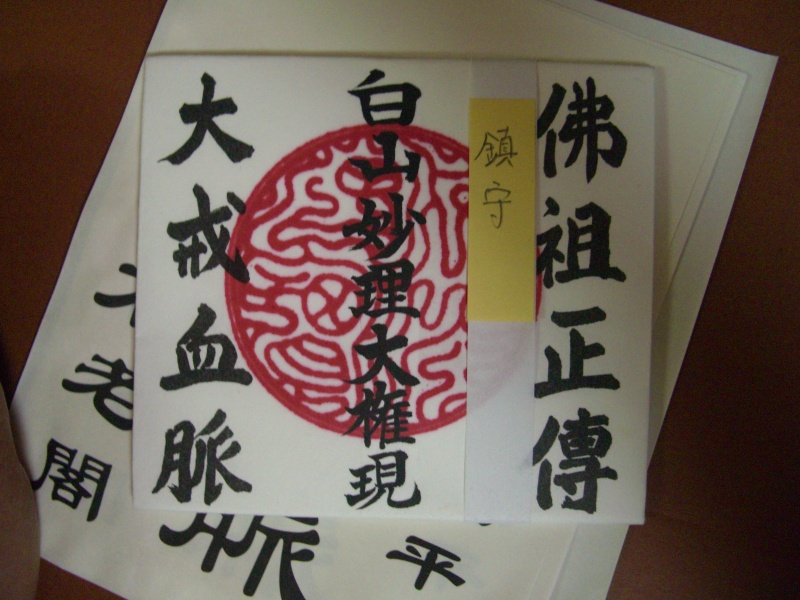 佛祖正傳
鎮守
白山妙理大権現
大戒血脈
老
閣
平